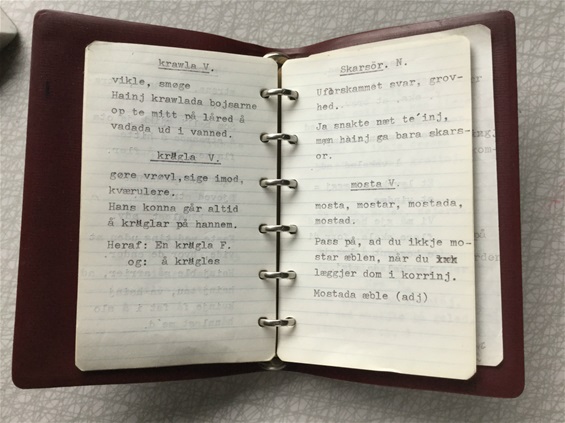 krawla V.
vikle, smøge
Hainj krawlada bojsarne
op te mitt på låred å
vadada ud i vanned.
krägla V.
gøre vrøvl,sige imod,
kværulere.
Hans konna går altid
å kräglar på hannem.
Heraf: En krägla F.
og: å krägles
Skarsör. N.
Uførskammet svar, grov-
hed.
Ja snakte næt te'inj,
mæn hàinj ga bara skars-
or.
mosta V.
mosta, mostar, mostada,
mostad.
Pass på, ad du ikkje mo-
star æblen, når du
læggjer dom i korrinj.
Mostada æble (adj)